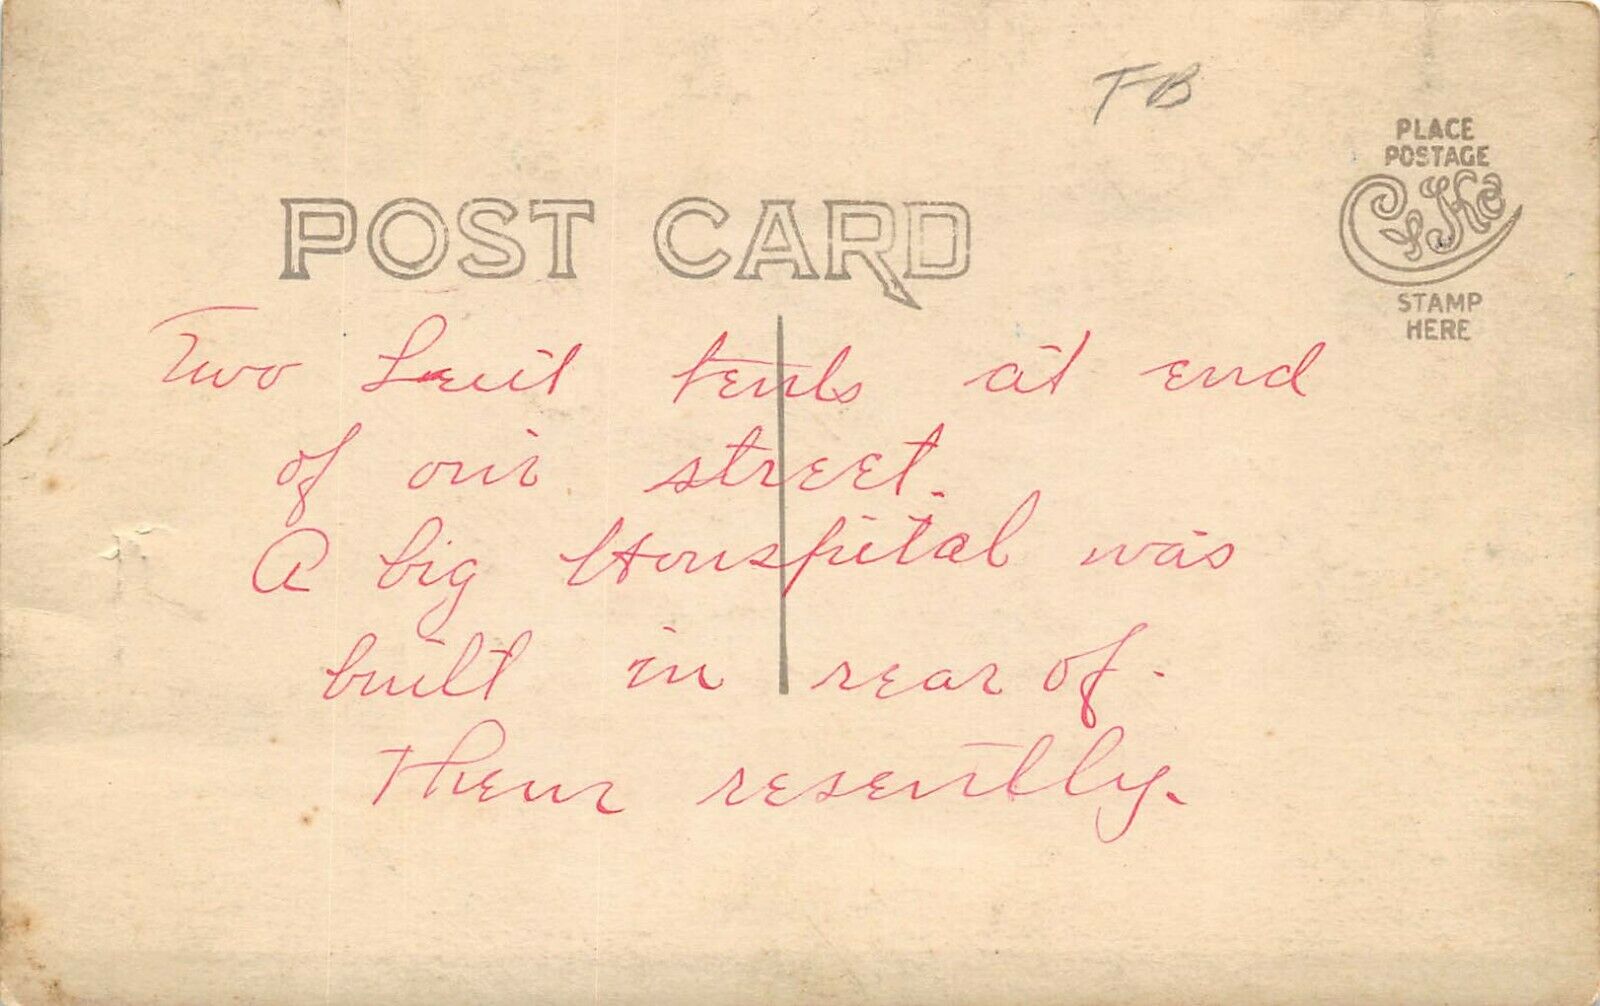 TFB
PLACE
POSTAGE
CYKO
STAMP
HERE
POST CARD
Two tents at end
of our street.
A big Houspital was
built in rear of.
Them resently.